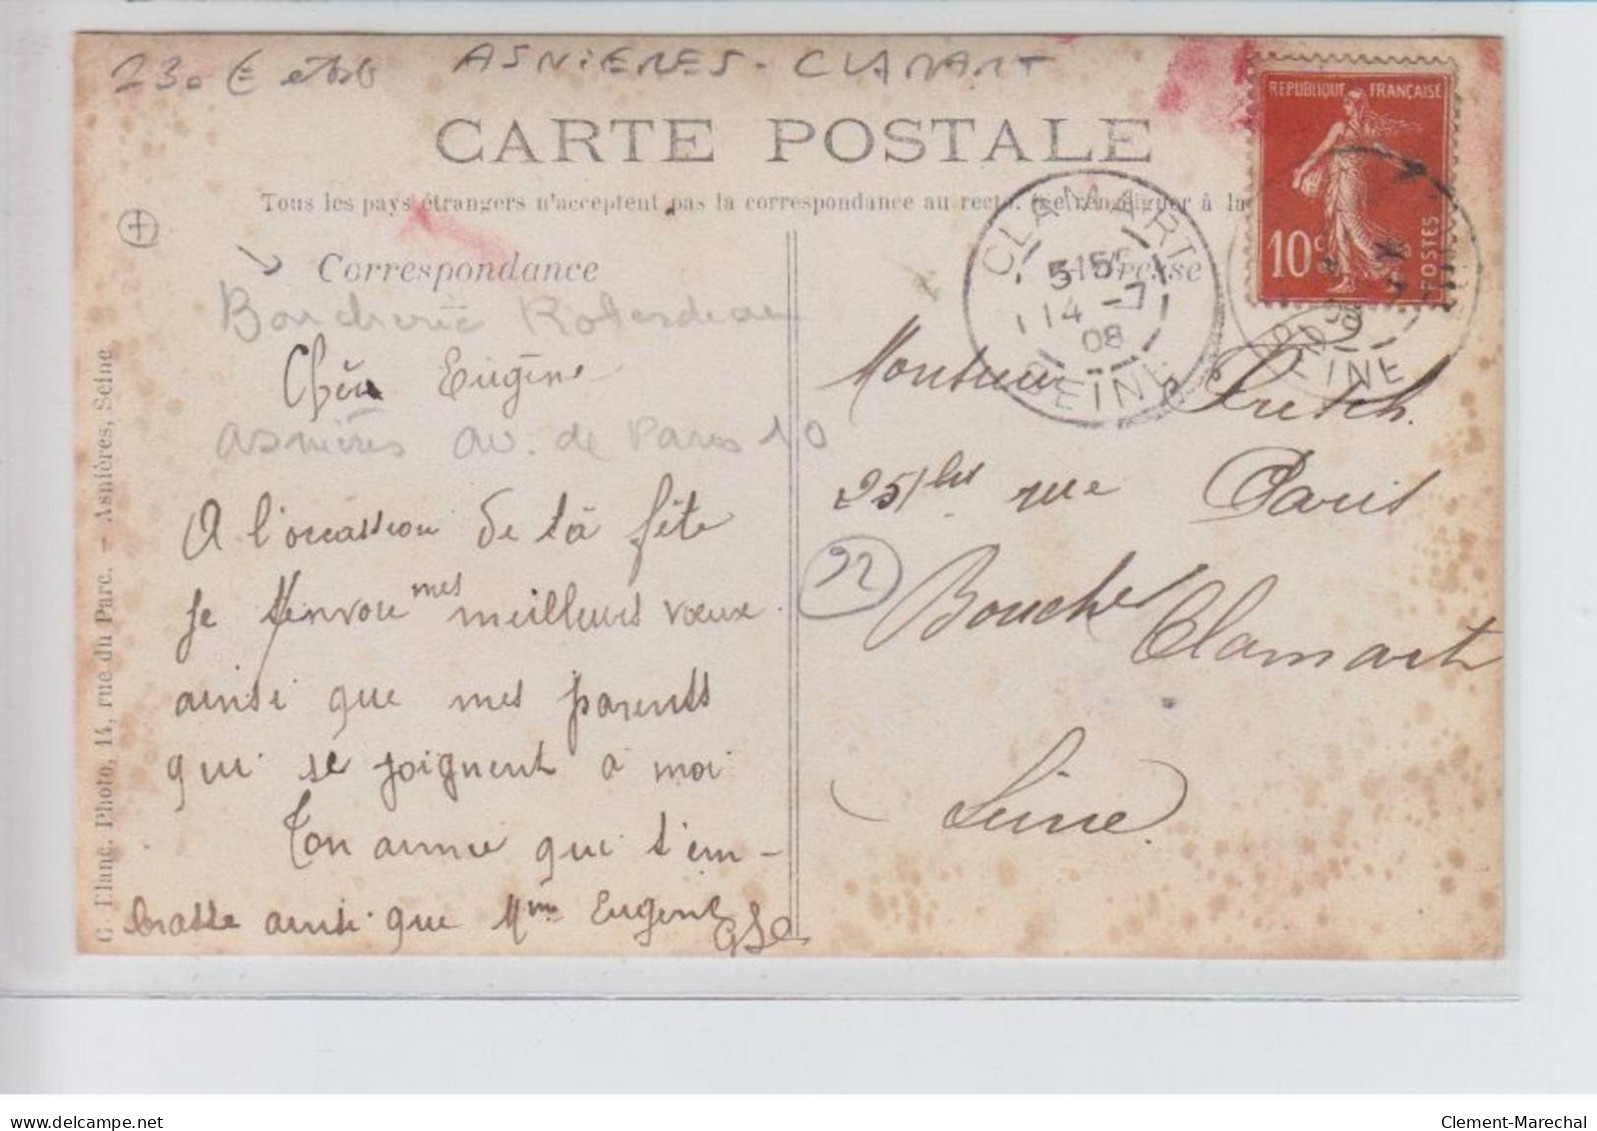 230 €
ASNIERES - CLAMART
CARTE POSTALE
Tous les pays étrangers n'acceptent pas la correspondance au recto. (se renseigner à la
Correspondance
Adresse
Boucherie
Cher Eugène
asnières av. de Paris 10
A l'occassion de ta fête
je t'envoie mes meilleurs vœux
ainsi que mes parents
qui se joignent à moi
Ton amie qui t'em-
brasse ainsi que Mme Eugene
G. Flanc, Photo, 14, rue du Parc. - Asnières, Seine
REPUBLIQUE FRANÇAISE
10c
POSTES
CLAMART
14 -7
08
SEINE
SEINE
Monsieur Fritsch.
25 bis rue Paris
92
Boucher Clamart
Seine
delcampe.net
Clement-Marechal